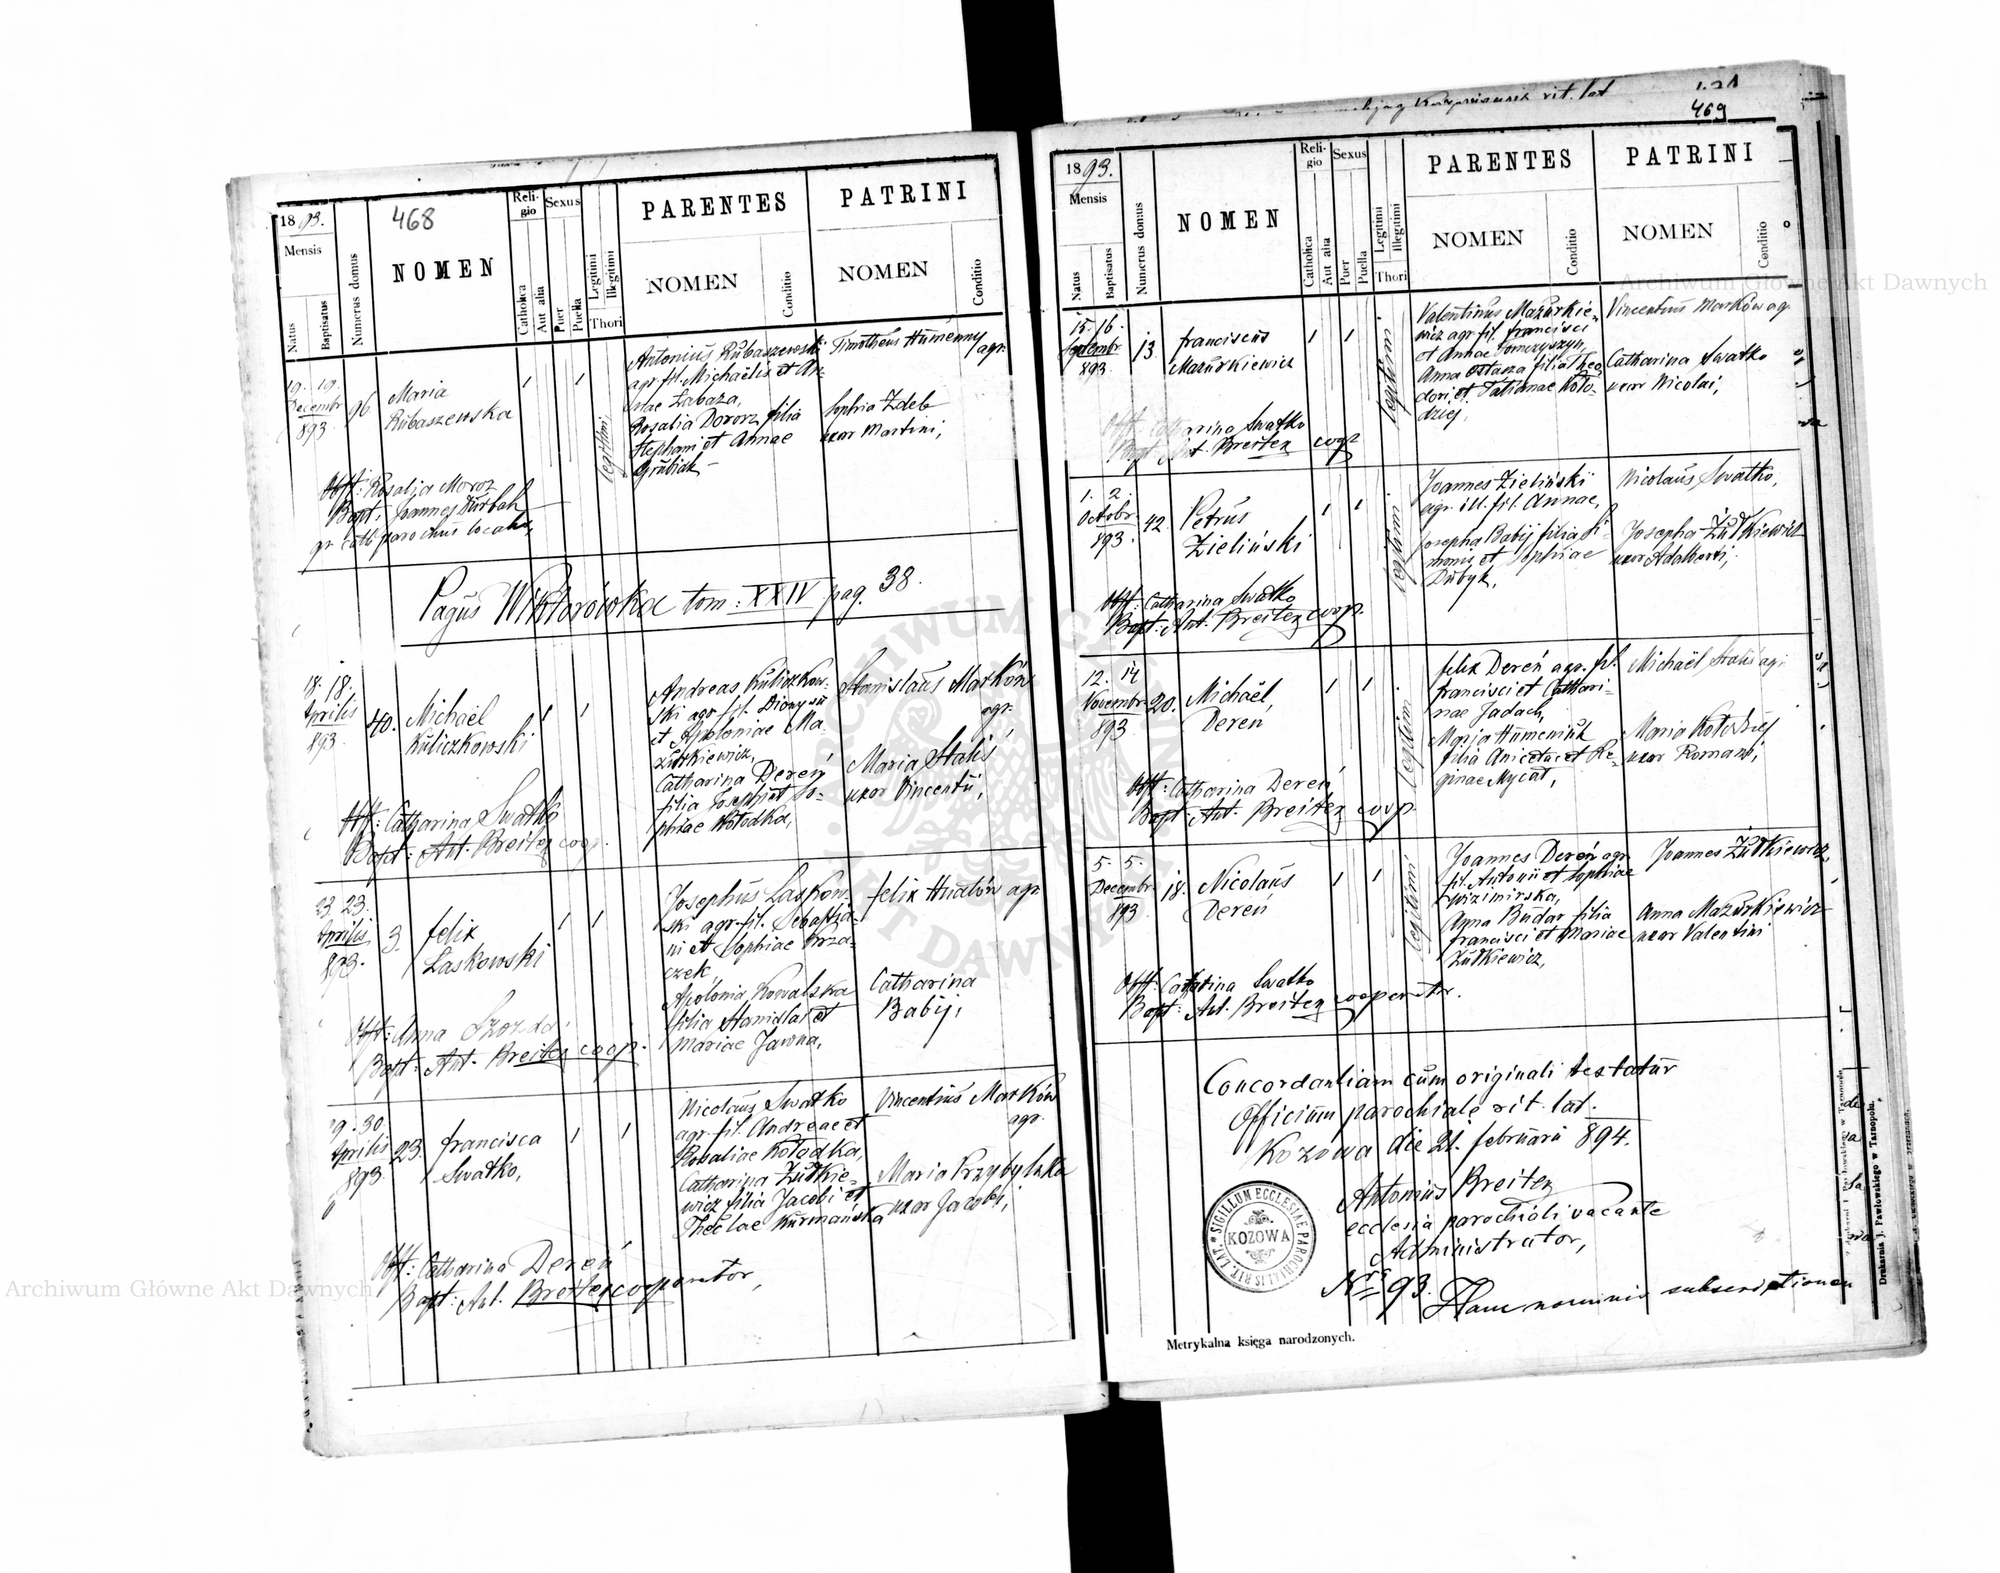 1893.
Mensis
Natus
Baptisatus
Numerus domus
468
NOMEN
Reli-
gio
Catholica
Aut alia
Sexus
Puer
Puella
Legitimi
Illegitimi
Thori
PARENTES
NOMEN
Conditio
PATRINI
NOMEN
Conditio
19. 19.
Decembr
893.
96
Maria
Rŭbaszewska
legitimi
Antoniŭs Rŭbaszewski
agr. fil. Michaëlis et An-
nae Łabaza,
Rosalia Dororz filia
Stephani et Annae
Timotheŭs Hŭmenny
agr.
Sophia Zdeb
uxor Martini,
Obst: Rosalia Moroz
Bapt: Joannes
gr. cath. parochŭs localis,
Pagŭs Wiktorówka tom: XXIV pag. 38.
18. 18.
Aprilis
893.
40.
Michaël
Kŭliczkowski
Andreas Kŭliczkow-
ski agr. fil. Dionysii
et Apoloniae Ma-
zŭrkiewicz,
Catharina Dereń
filia Josephi et So-
phiae Kołodka,
Stanislaŭs Marków
agr.
Maria Stalis
uxor Vincentii,
Obst: Catharina Swatko
Bapt: Ant. Breiter coop.
23. 23.
Aprilis
893.
3.
Felix
Laskowski
Josephŭs Laskow-
ski agr. fil. Sebastia-
ni et Sophiae Krza-
czek,
Apolonia Kowalska
filia Stanislai et
Mariae Jawna,
Felix Hŭdów agr
Catharina
Babij,
Obst: Anna Szozda
Bapt: Ant. Breiter coop.
29. 30.
Aprilis
893.
23.
Francisca
Swatko,
Nicolaŭs Swatko
agr. fil. Andreae et
Rosaliae Kołodka,
Catharina Zŭtkie-
wicz filia Jacobi et
Theclae Kŭrmańska
Vincentiŭs Marków
agr.
Maria Przybylska
uxor Jacobi,
Obst: Catharina Dereń
Bapt: Ant. Breiter cooperator,
rit. lat
469
1893.
Mensis
Natus
Baptisatus
Numerus domus
NOMEN
Reli-
gio
Catholica
Aut alia
Sexus
Puer
Puella
Legitimi
Illegitimi
Thori
PARENTES
NOMEN
Conditio
PATRINI
NOMEN
Conditio
15. 16.
Septembr
893.
13.
Franciscŭs
Mazŭrkiewicz
legitimi.
Valentinŭs Mazŭrkie-
wicz agr. fil. Francisci
et Annae Tomczyszyn,
Anna Ostasza filia Theo-
dori et Tatianae Koło-
dziej,
Vincentiŭs Marków agr.
Catharina Swatko
uxor Nicolai,
Obst: Catharina Swatko
Bapt: Ant. Breiter coop
1. 2.
Octobr.
893.
42.
Petrŭs
Zieliński
legitimi.
Joannes Zieliński
agr. ill. fil. Annae,
Josepha Babij filia Si-
monis et Sophiae
Dŭbyk,
Nicolaŭs Swatko,
Josepha Zŭtkiewicz
uxor Adalberti,
Obst: Catharina Swatko
Bapt: Ant. Breiter coop.
12. 14
Novembr.
893
20.
Michaël,
Dereń
legitimi.
Felix Dereń agr. fil.
Francisci et Cathari-
nae Jadach,
Maria Hŭmeniŭk
filia Aniceti et Re-
ginae Mycat,
Michaël Stalis agr.
Maria Kołodziej
uxor Romani,
Obst: Catharina Dereń
Bapt: Ant. Breiter coop
5. 5.
Decembr.
893
18.
Nicolaŭs
Dereń
legitimi
Joannes Dereń agr
fil. Antonii et Sophiae
Anna Bŭdar filia
Francisci et Mariae
Zŭtkiewicz,
Joannes Zŭtkiewicz,
Anna Mazŭrkiewicz
uxor Valentini
Obst: Catharina Swatko
Bapt: Ant. Breiter cooperator.
Concordantiam cŭm originali testatŭr
Officiŭm parochiale rit. lat.
Kozowa die 21. Febrŭarii 894.
Antoniŭs Breiter
ecclesia parochiali vacante
Administrator,
SIGILLUM ECCLESIAE PAROCHIALIS RIT. LAT.
KOZOWA
Nrs 93.
Hanc nominis subscriptionem
Metrykalna księga narodzonych.
Drukarnia J. Pawłowskiego w Tarnopolu.
ARCHIWUM GŁÓWNE AKT DAWNYCH
Archiwum Główne Akt Dawnych
Archiwum Główne Akt Dawnych